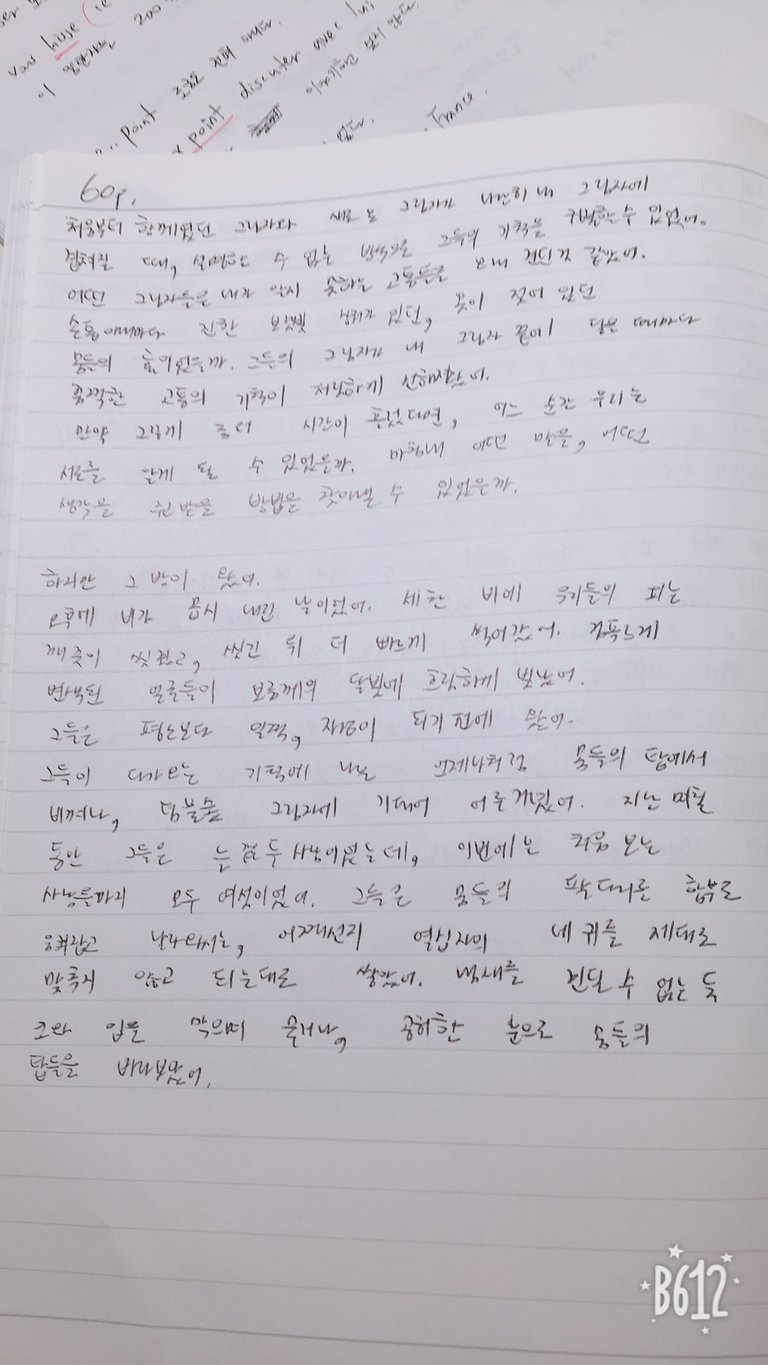 von hisse ce
이 200
... point 조금도 전혀 아니다.
point discuter avec lui
이야기하고 싶지 않다.
없다.
. France.
60p.
처음부터 함께 있던 그림자와 새로 온 그림자가 나란히 내 그림자에
겹쳐질 때, 설명할 수 없는 방식으로 그들의 기척을 구별할 수 있었어.
어떤 그림자들은 내가 알지 못하는 고통들을 오래 견딘 것 같았어.
손톱 아래마다 진한 보랏빛 상처가 있던, 옷이 젖어 있던
몸들의 혼이었을까. 그들의 그림자가 내 그림자 끝에 닿을 때마다
끔찍한 고통의 기척이 저릿하게 전해졌어.
만약 그렇게 좀더 시간이 흘렀다면, 어느 순간 우리는
서로를 알게 될 수 있었을까. 마침내 어떤 말을, 어떤
생각을 주고받을 방법을 찾아낼 수 있었을까.
하지만 그 밤이 왔어.
오후에 비가 몹시 내린 날이었어. 세찬 비에 우리들의 피는
깨끗이 씻겼고, 씻긴 뒤 더 빠르게 썩어갔어. 검푸르게
변색된 얼굴들이 보름께의 달빛에 흐릿하게 빛났어.
그들은 평소보다 일찍, 자정이 되기 전에 왔어.
그들이 다가오는 기척에 나는 언제나처럼 몸들의 탑에서
비껴나, 덤불숲 그림자에 기대어 어른거렸어. 지난 며칠
동안 그들은 늘 같은 두 사람이었는데, 이번에는 처음 보는
사람들까지 모두 여섯이었어. 그들은 몸들의 팔다리를 함부로
움켜잡고 날라와서는, 어째선지 열십자의 네 귀를 제대로
맞추지 않고 되는대로 쌓았어. 냄새를 견딜 수 없는 듯
코와 입을 막으며 물러나, 공허한 눈으로 몸들의
탑들을 바라보았어.
B612